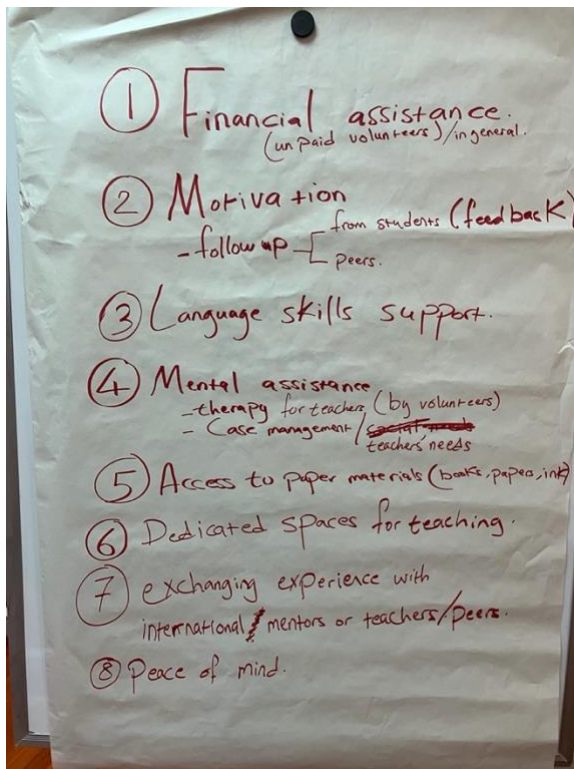 ① Financial assistance.
(unpaid volunteers)/in general.
② Motivation
- follow up - from students (feedback)
peers.
③ Language skills support.
④ Mental assistance
- therapy for teachers (by volunteers)
- Case management/
teachers' needs
⑤ Access to paper materials (books, papers, ink)
⑥ Dedicated spaces for teaching.
⑦ exchanging experience with
international mentors or teachers/peers.
⑧ Peace of mind.